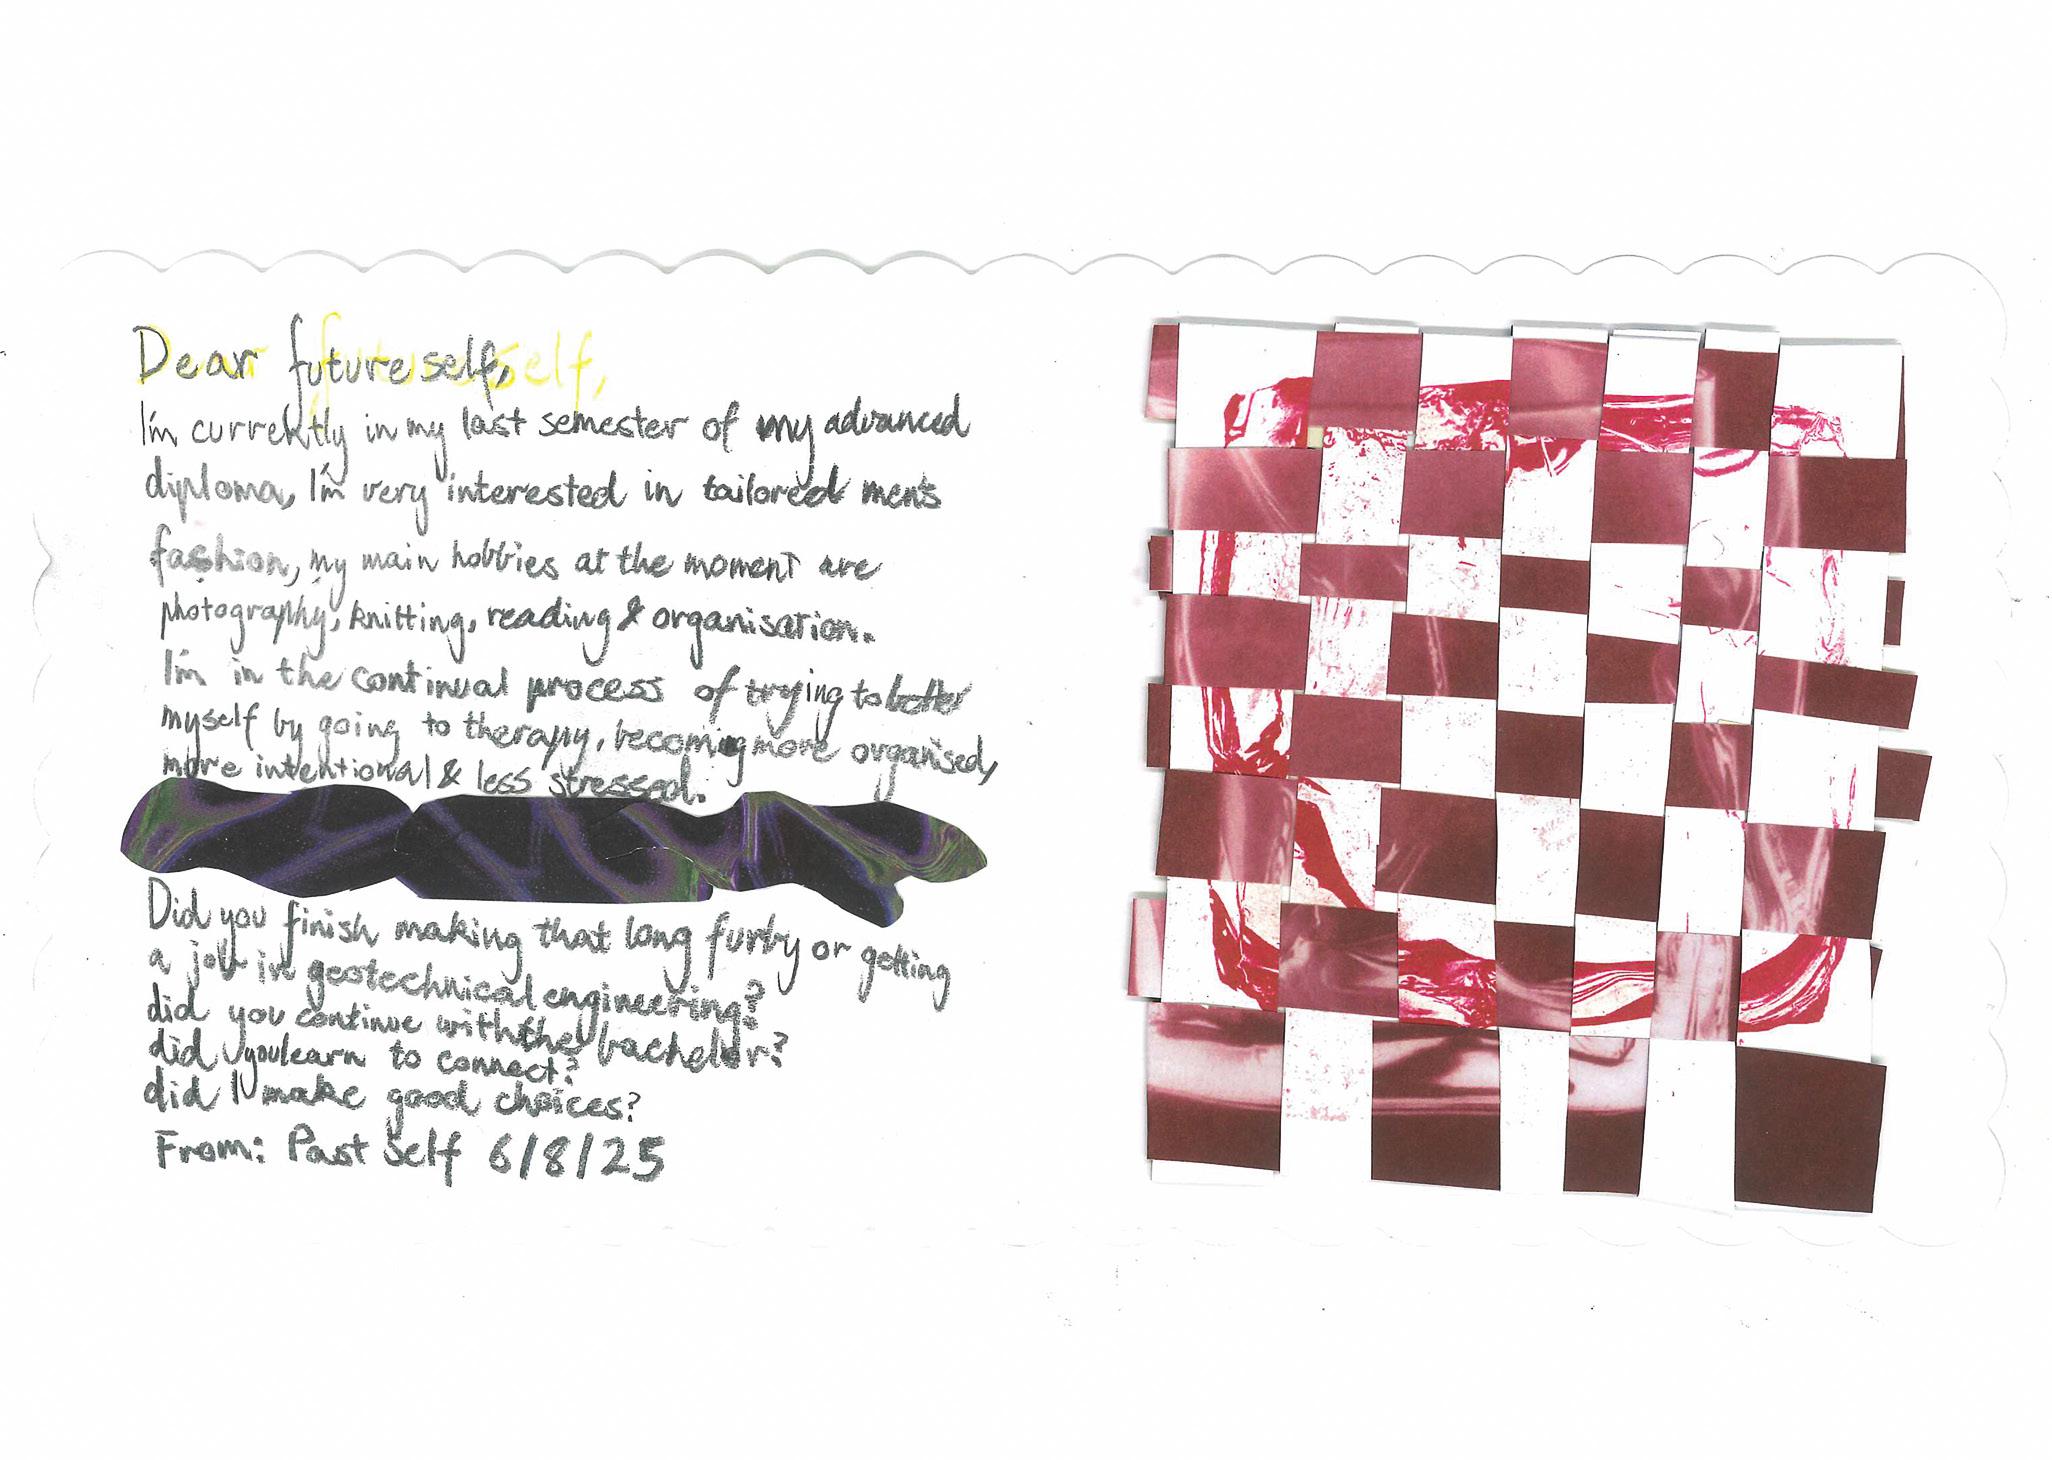 Dear future self,
I'm currently in my last semester of my advanced
diploma, I'm very interested in tailored men's
fashion, my main hobbies at the moment are
photography, knitting, reading & organisation.
I'm in the continual process of trying to better
myself by going to therapy, becoming more organised,
more intentional & less stressed.
Did you finish making that long furby or getting
a job in geotechnical engineering?
did you continue with the bachelor?
did you learn to connect?
did I make good choices?
From: Past self 6/8/25